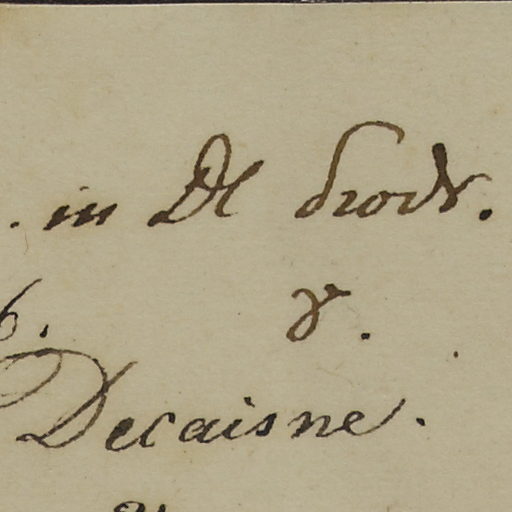 . in DC prodr.
6. γ.
Decaisne.